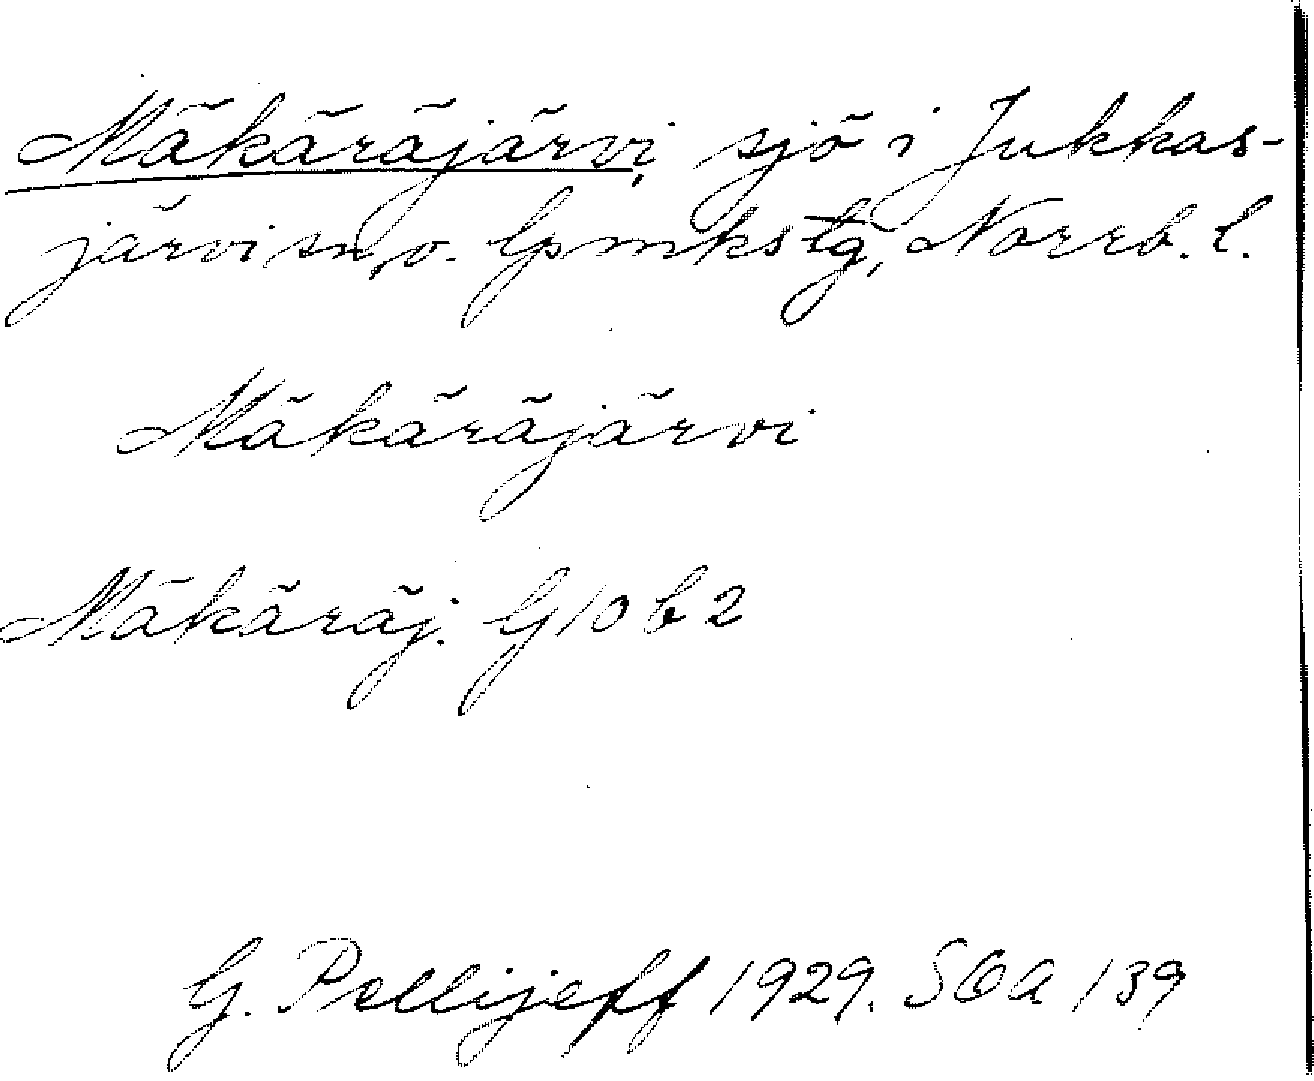 Mäkäräjärvi, sjö i Jukkas-
järvi sn, o. lpmkstg, Norrb. l.
Mäkäräjärvi
Mäkäräj. G 10 b 2
G. Pellijeff 1929. SOA 139